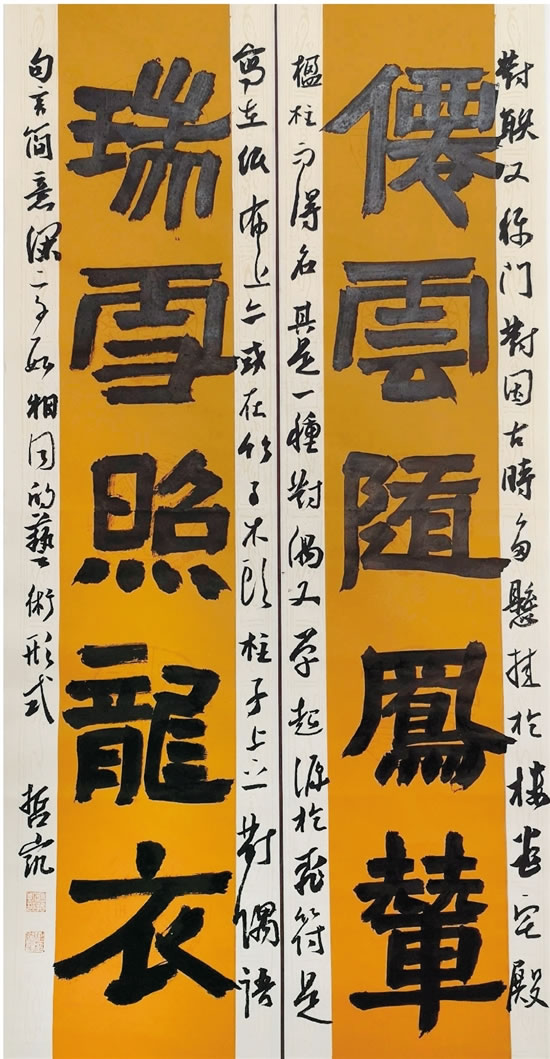 對联又称门對因古時多懸挂於樓堂宅殿
僊雲随鳳輦
楹柱而得名其是一種對偶文学起源於桃符是
寫在纸布上亦或在竹子木头柱子上之對偶語
瑞雪照龍衣
句言简意深字数相同的藝術形式
哲